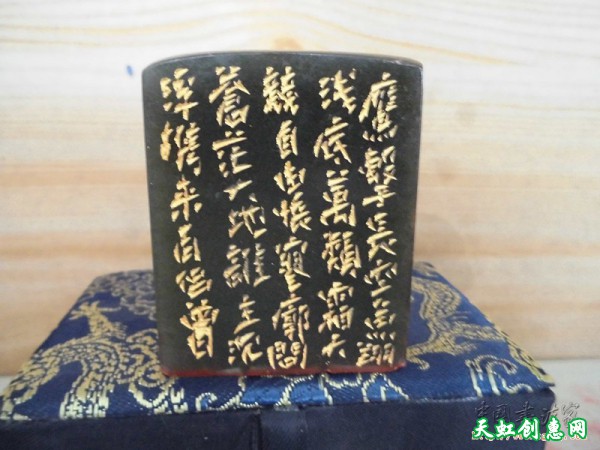 鷹擊長空魚翔
浅底萬類霜天
競自由悵寥廓問
蒼茫大地誰主沉
浮携来百侣曾
天虹创惠网